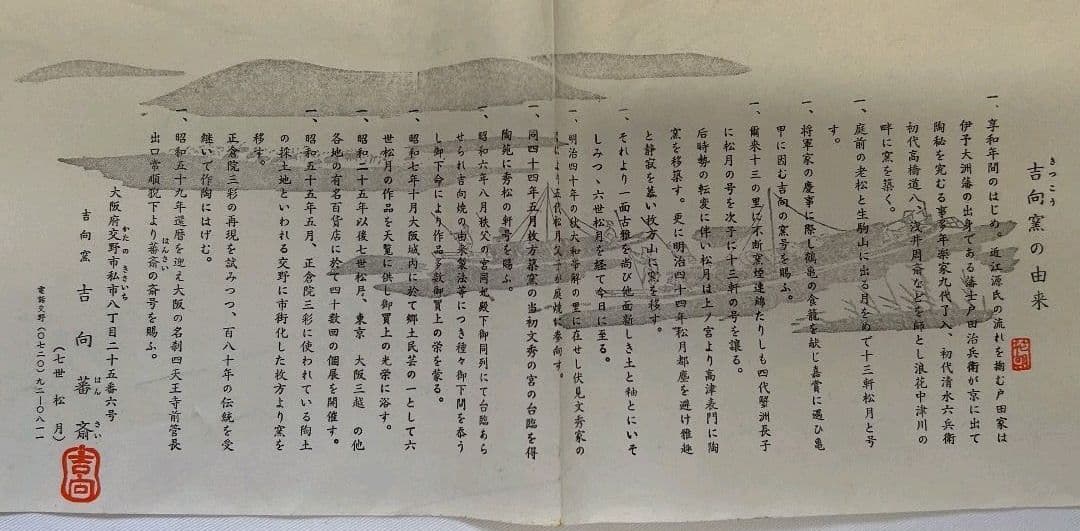 きっこう
吉向窯の由来
一、享和年間のはじめ。近江源氏の流れを掬む戸田家は
伊予大洲藩の出身である藩士戸田治兵衛が京に出て
陶秘を究むる事多年楽家九代了入、初代清水六兵衛
初代高橋道八、浅井周斎などを師とし浪花中津川の
畔に窯を築く。
一、庭前の老松と生駒山に出る月をめで十三軒松月と号
す。
一、将軍家の慶事に際し鶴亀の食籠を献じ嘉賞に遇ひ亀
甲に因む吉向の窯号を賜ふ。
一、爾来十三の里に不断窯煙連綿たりしも四代蟹洲長子
に松月の号を次子に十三軒の号を譲る。
后時勢の転変に伴い松月は上ノ宮より高津表門に陶
窯を移築す。更に明治四十四年松月都塵を避け雅趣
と静寂を慕い枚方山に窯を移す。
一、それより一面古雅を尚び他面新しき土と釉とにいそ
しみつゝ六世松月を経て今日に至る。
一、明治四十年の秋大和帯解の里に在せし伏見文秀家の
より五代松月父子が庭焼に参向す。
一、同四十四年五月枚方築窯の当初文秀の宮の台臨を得
陶苑に秀松の軒号を賜ふ。
一、昭和六年八月秩父の宮同妃殿下御同列にて台臨あら
せられ吉向焼の由来製法等につき種々御下問を忝う
し御下命により作品多数御買上の栄を蒙る。
一、昭和七年十月大阪城内に於て郷土民芸の一として六
世松月の作品を天覧に供し御買上の光栄に浴す。
一、昭和二十五年以後七世松月、東京 大阪三越 の他
各地の有名百貨店に於て四十数回の個展を開催す。
一、昭和五十五年五月、正倉院三彩に使われている陶土
の採土地といわれる交野に市街化した枚方より窯を
移す。
正倉院三彩の再現を試みつつ、百八十年の伝統を受
継いで作陶にはげむ。
一、昭和五十九年還暦を迎え大阪の名刹四天王寺前管長
出口常順猊下より蕃斎の斎号を賜ふ。
はんさい
大阪府交野市私市八丁目二十五番六号
かたの きさいち
吉向窯 吉向蕃斎
はん さい
(七世 松月)
電話交野(〇七二〇)九二−〇八二一
吉向